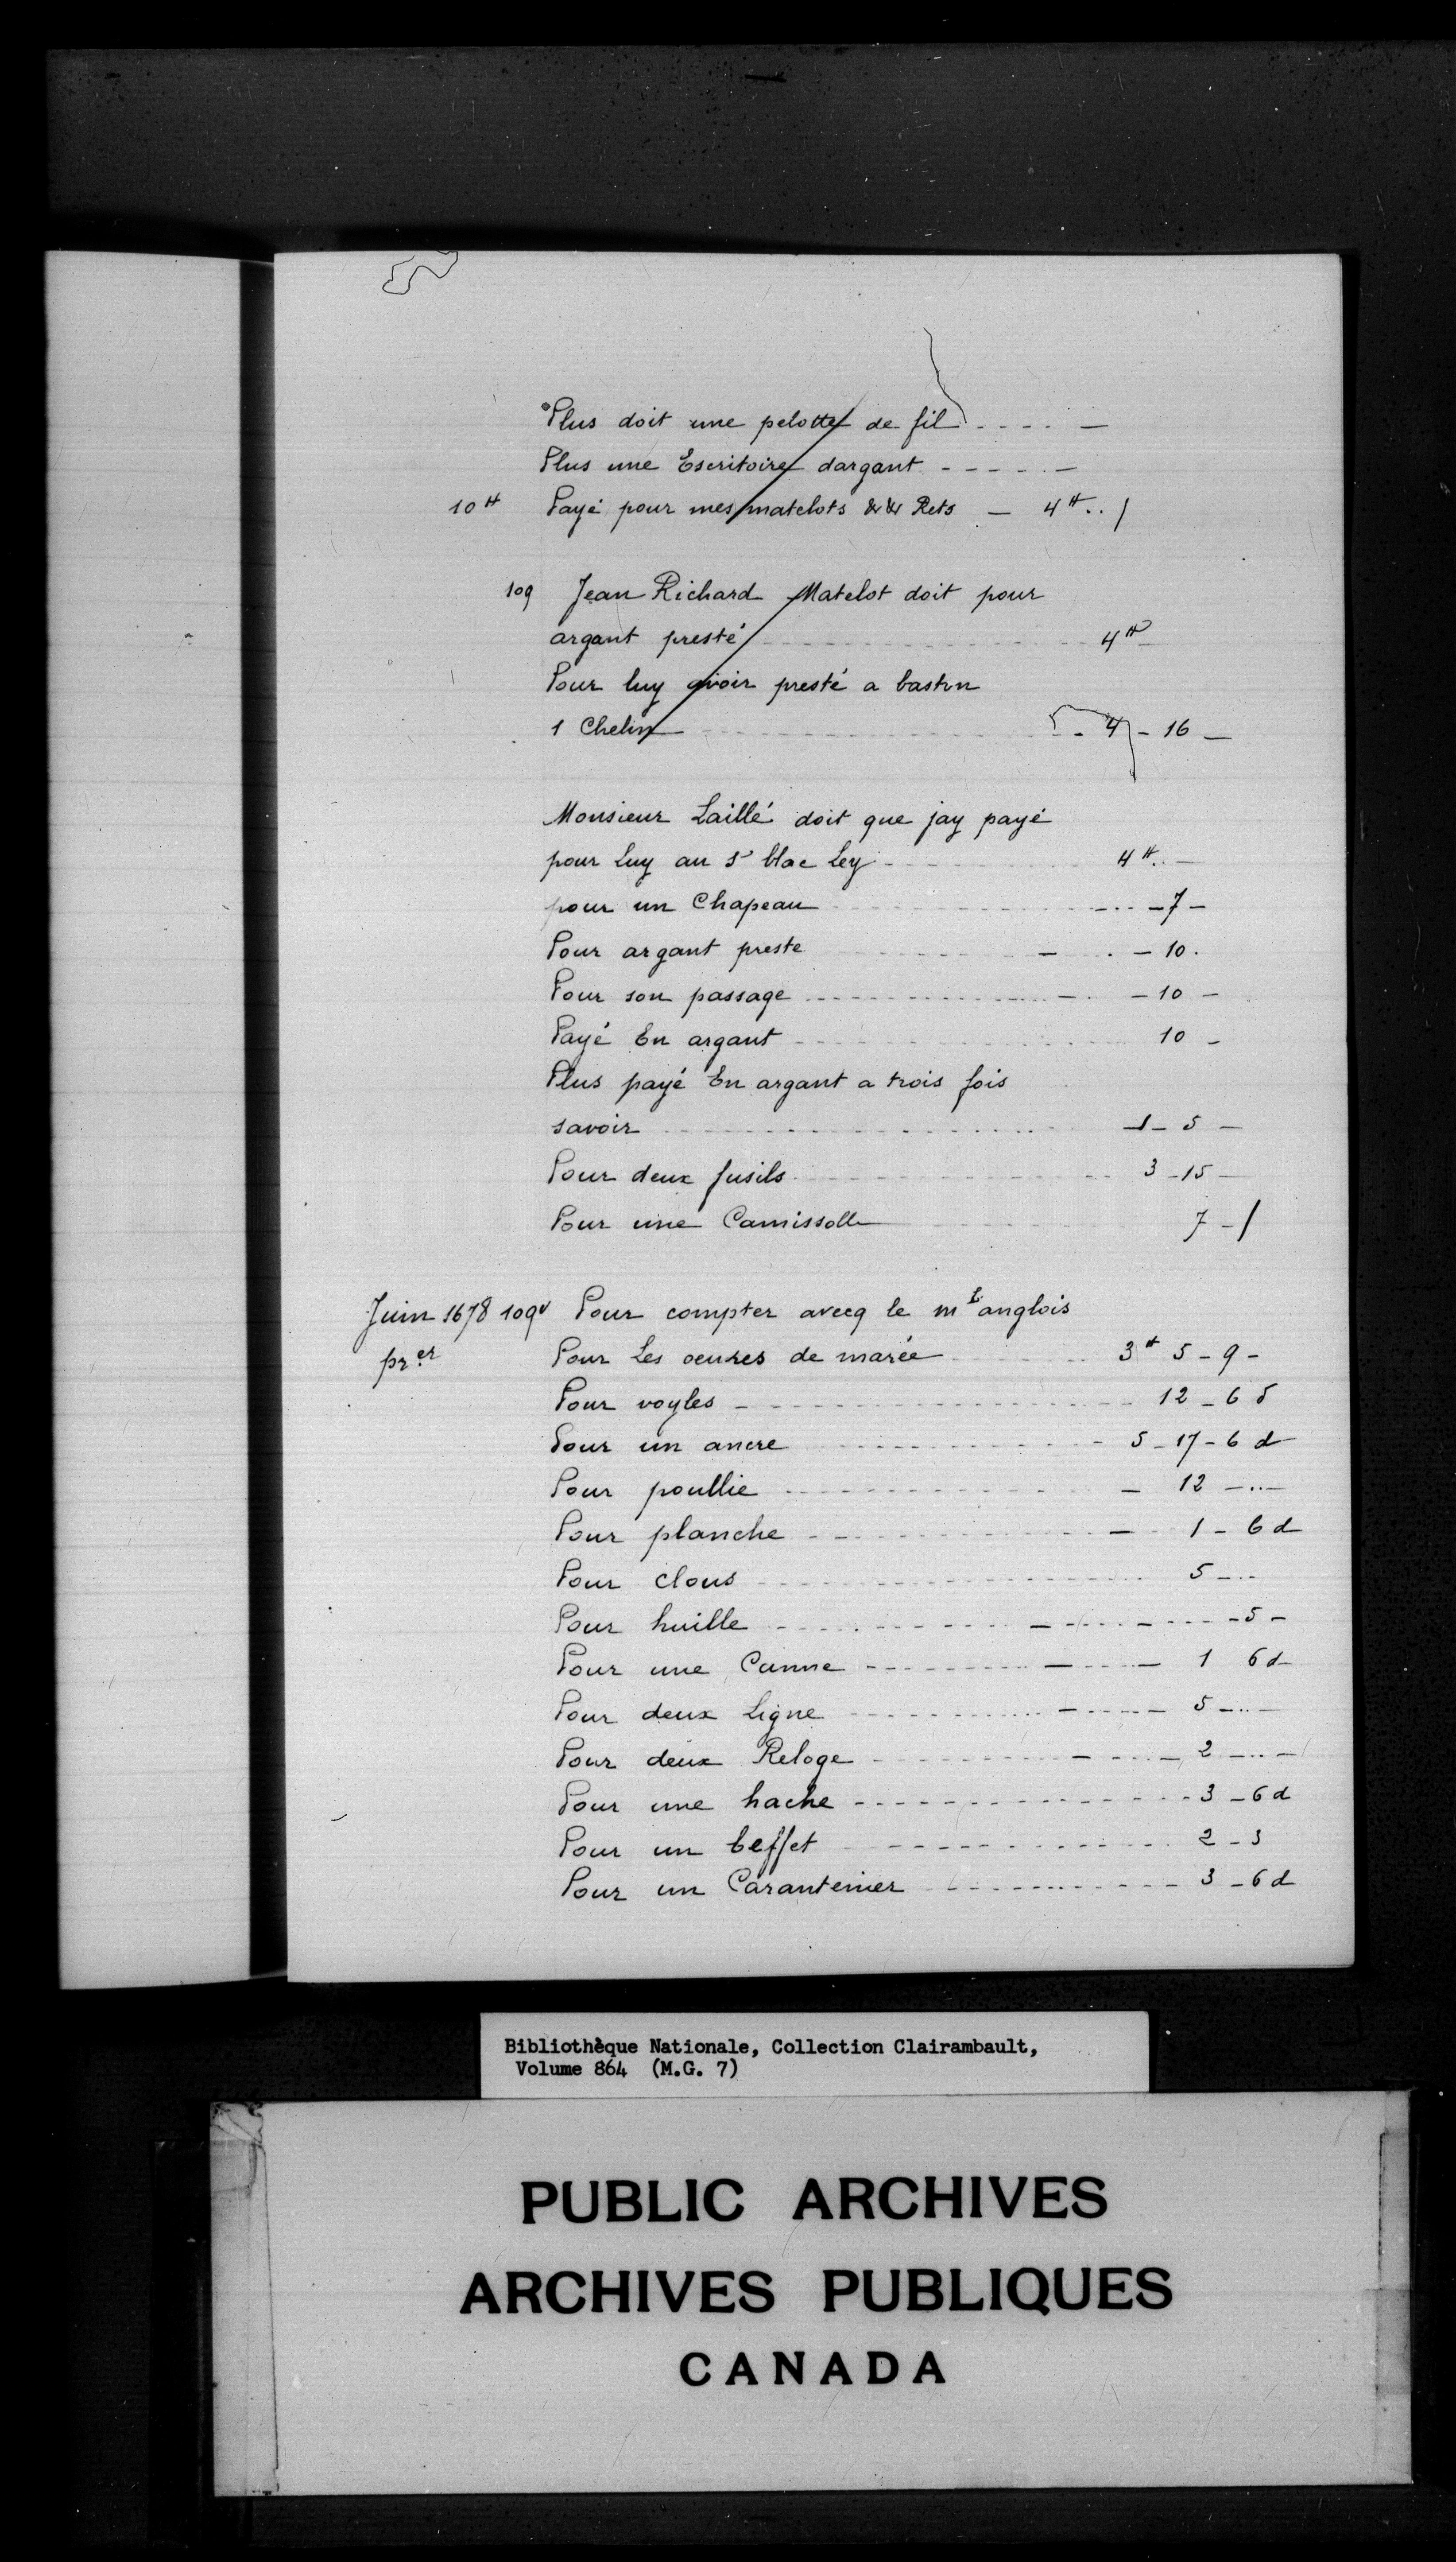 Plus doit une pelotte de fil - - - - —
Plus une Escritoire dargant - - - - - —
10 # Payé pour mes matelots && Rets — 4 # . . /
109 Jean Richard Matelot doit pour
argant presté - - - 4 # -
Pour luy avoir presté a baston
1 Chelin - - - 4 - 16 —
Monsieur Laillé doit que jay payé
pour Luy au Sr blac Ley - - - 4 # . . —
pour un Chapeau - - - - 7 -
Pour argant preste - - - 10 .
Pour son passage - - - - 10 -
Payé En argant - - - 10 -
Plus payé En argant a trois fois
savoir - - - 1 - 5 —
Pour deux fusils - - - 3 - 15 —
Pour une Camissolle - - - 7 - /
Juin 1678 109v Pour compter avecq le mt anglois
prer Pour Les oeuvres de marée - - - 3 # 5 - 9 -
Pour voyles - - - 12 - 6 δ
Pour un ancre - - - 5 - 17 - 6 d
Pour poullie - - - 12 - .. —
Pour planche - - - 1 - 6 d
Pour clous - - - 5 - ..
Pour huille - - - - 5 -
Pour une Canne - - - 1 6 d
Pour deux Ligne - - - 5 - .. —
Pour deux Reloge - - - 2 - .. —
Pour une hache - - - 3 - 6 d
Pour un beffet - - - 2 - 3
Pour un Carantenier - - - 3 - 6 d
Bibliothèque Nationale, Collection Clairambault,
Volume 864 (M.G. 7)
PUBLIC ARCHIVES
ARCHIVES PUBLIQUES
CANADA